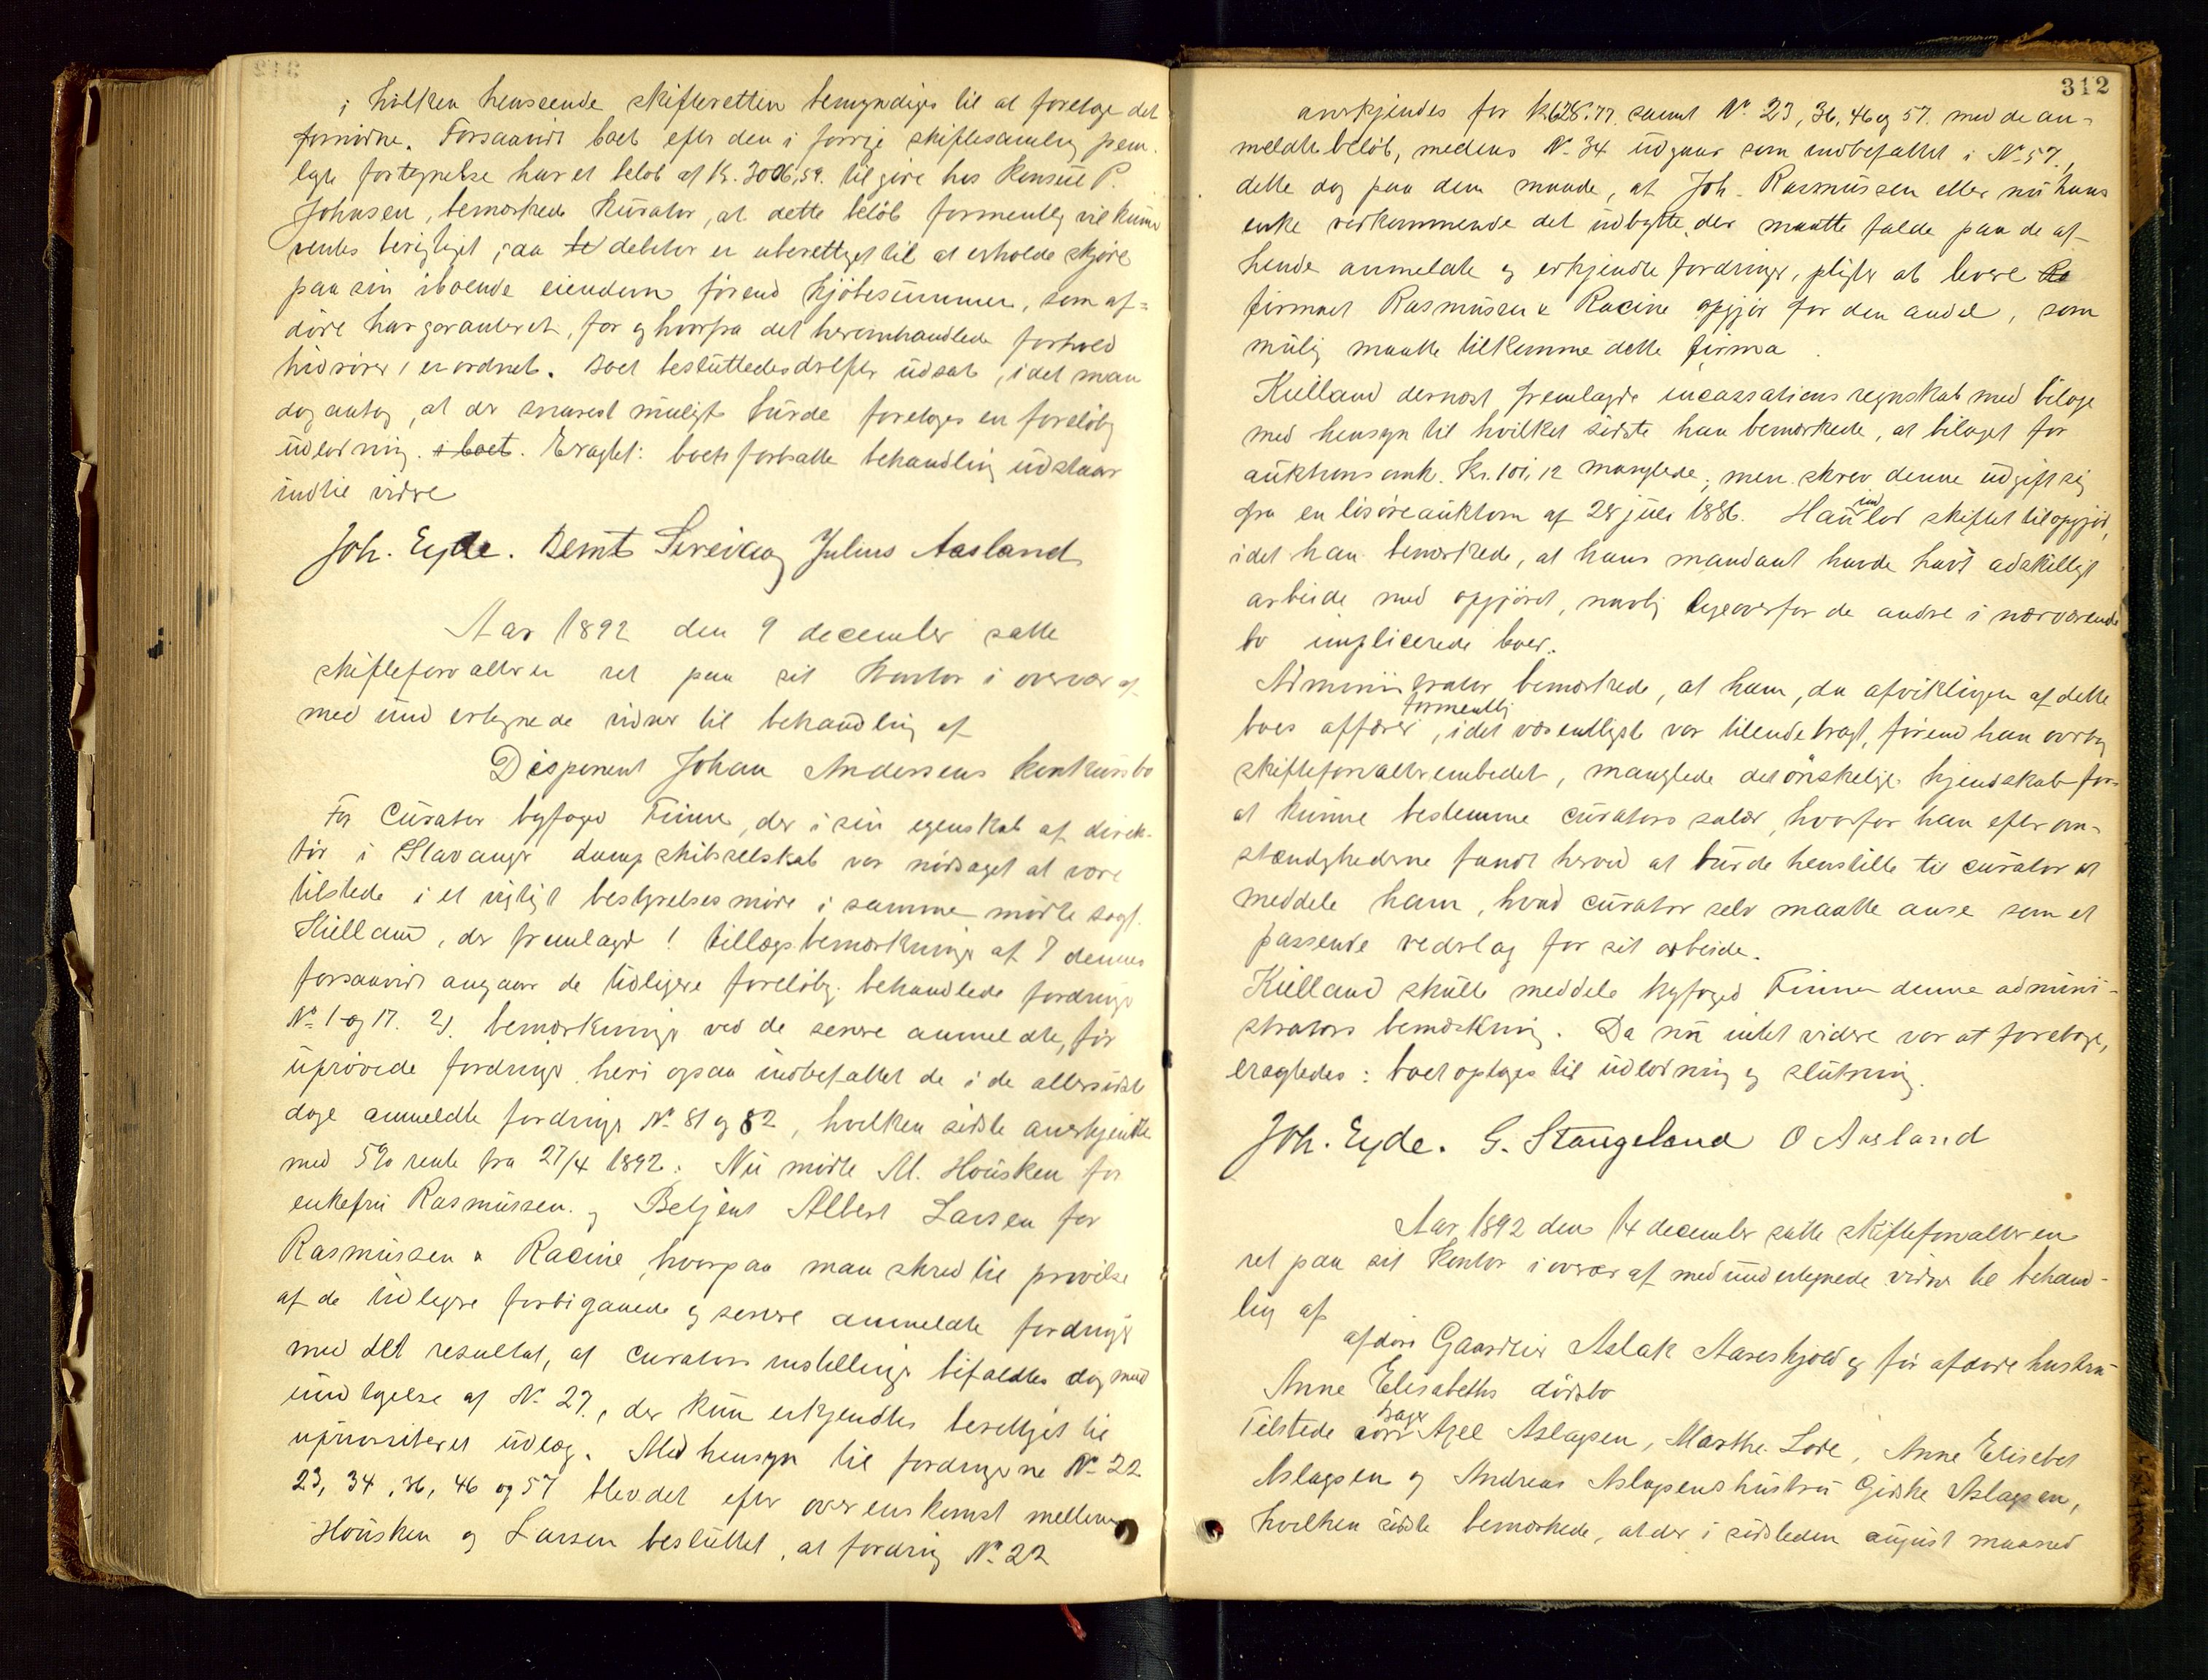 i hvilken henseende skifteretten bemyndiges til at foretage det
fornødne. Forsaavidt boet efter den i forrige skiftesamling frem-
lagte fortegnelse har et beløb af Kr. 3006,59. til gode hos Konsul P.
Johnsen, bemærkede Kurator, at dette beløb formentlig vil kunne
ventes berigtiget, saa debitor er uberettiget til at erholde skjøde
paa sin iboende eiendom førend kjøbesummen, som af-
døde har garanteret, for og hvorfra det heromhandlede forhold
hidrører, er ordnet. Boet besluttedes derefter udsat, idet man
dog antog, at der snarest muligt burde foretages en foreløbig
udlodning i boet. Eragtet: boets fortsatte behandling udstaar
indtil videre
Joh. Eyde. Bernt Sirevaag Julius Aasland
Aar 1892 den 9 december satte
skifteforvalteren ret paa sit kontor i overvær af
medundertegnede vidner til behandling af
Disponent Johan Andersens konkursbo
For Curator byfoged Finne, der i sin egenskab af direk-
tør i Stavanger dampskibsselskab var nødsaget at være
tilstede i et vigtigt bestyrelsesmøde i samme mødte sagf.
Kielland, der fremlagde 1 tillægsbemærkninger af 7 dennes
forsaavidt angaar de tidligere foreløbig behandlede fordringer
No 1 og 17. 2). bemærkninger ved de senere anmeldte, før
uprøvede fordringer heri ogsaa indbefattet de i de allersidste
dage anmeldte fordringer No 81 og 82, hvilken sidste anerkjendtes
med 5% rente fra 27/4 1892. Nu mødte M. Housken for
enkefru Rasmussen og Betjent Albert Larsen for
Rasmussen & Racine, hvorpaa man skred til prøvelse
af de tidligere forbigaaede og senere anmeldte fordringer
med det resultat, at curators indstillinger bifaldtes dog med
undtagelse af No 27., der kun erkjendtes berettiget til
uprioriteret udlæg. Med hensyn til fordringerne No 22
23, 34, 36, 46 og 57 blev det efter overenskomst mellem
Housken og Larsen besluttet, at fordring No 22
312
anerkjendes for K628.77. samt No 23, 36, 46 og 57. med de an-
meldte beløb, medens No 34 udgaar som indbefattet i No 57.,
dette dog paa den maade, at Joh. Rasmussen eller nu hans
enke vedkommende det udbytte, der maatte falde paa de af
hende anmeldte og erkjendte fordringer, pligter at levere
firmaet Rasmussen & Racine opgjør for den andel, som
mulig maatte tilkomme dette firma.
Kielland dernæst fremlagde incassations regnskab med bilage
med hensyn til hvilket sidste han bemærkede, at bilaget for
auktionsomk. Kr. 101,12 manglede; men skrev denne udgift sig
fra en løsøreauktion af 28 juli 1886. Han indlod skiftet til opgjør,
idet han bemærkede, at hans mandant havde havt adskilligt
arbeide med opgjøret, navnlig ligeoverfor de andre i nærværende
bo implicerede boer.
Administrator bemærkede, at ham, da afviklingen af dette
boes affærer formentlig, idet væsentligste var tilendebragt, førend han overtog
skifteforvalterembedet, manglede det ønskelige kjendskab for
at kunne bestemme curators salær, hvorfor han efter om-
stændighederne fandt herved at burde henstille til curator at
meddele ham, hvad curator selv maatte anse som et
passende vederlag for sit arbeide.
Kielland skulle meddele byfoged Finne denne admini-
strators bemærkning. Da nu intet videre var at foretage,
eragtedes: boet optages til udlodning og slutning.
Joh. Eyde. G. Stangeland O Aasland
Aar 1892 den 14 december satte skifteforvalteren
ret paa sit kontor i overvær af medundertegnede vidner til behand-
ling af
afdøde Gaardeier Aslak Aareskjold og før afdøde hustru
Anne Elisabeths dødsbo
Tilstede bager Axel Aslagsen, Marthe Lode, Anne Elisebet
Aslagsen og Andreas Aslagsens hustru Gidske Aslagsen,
hvilken sidste bemærkede, at der i sidstleden august maaned